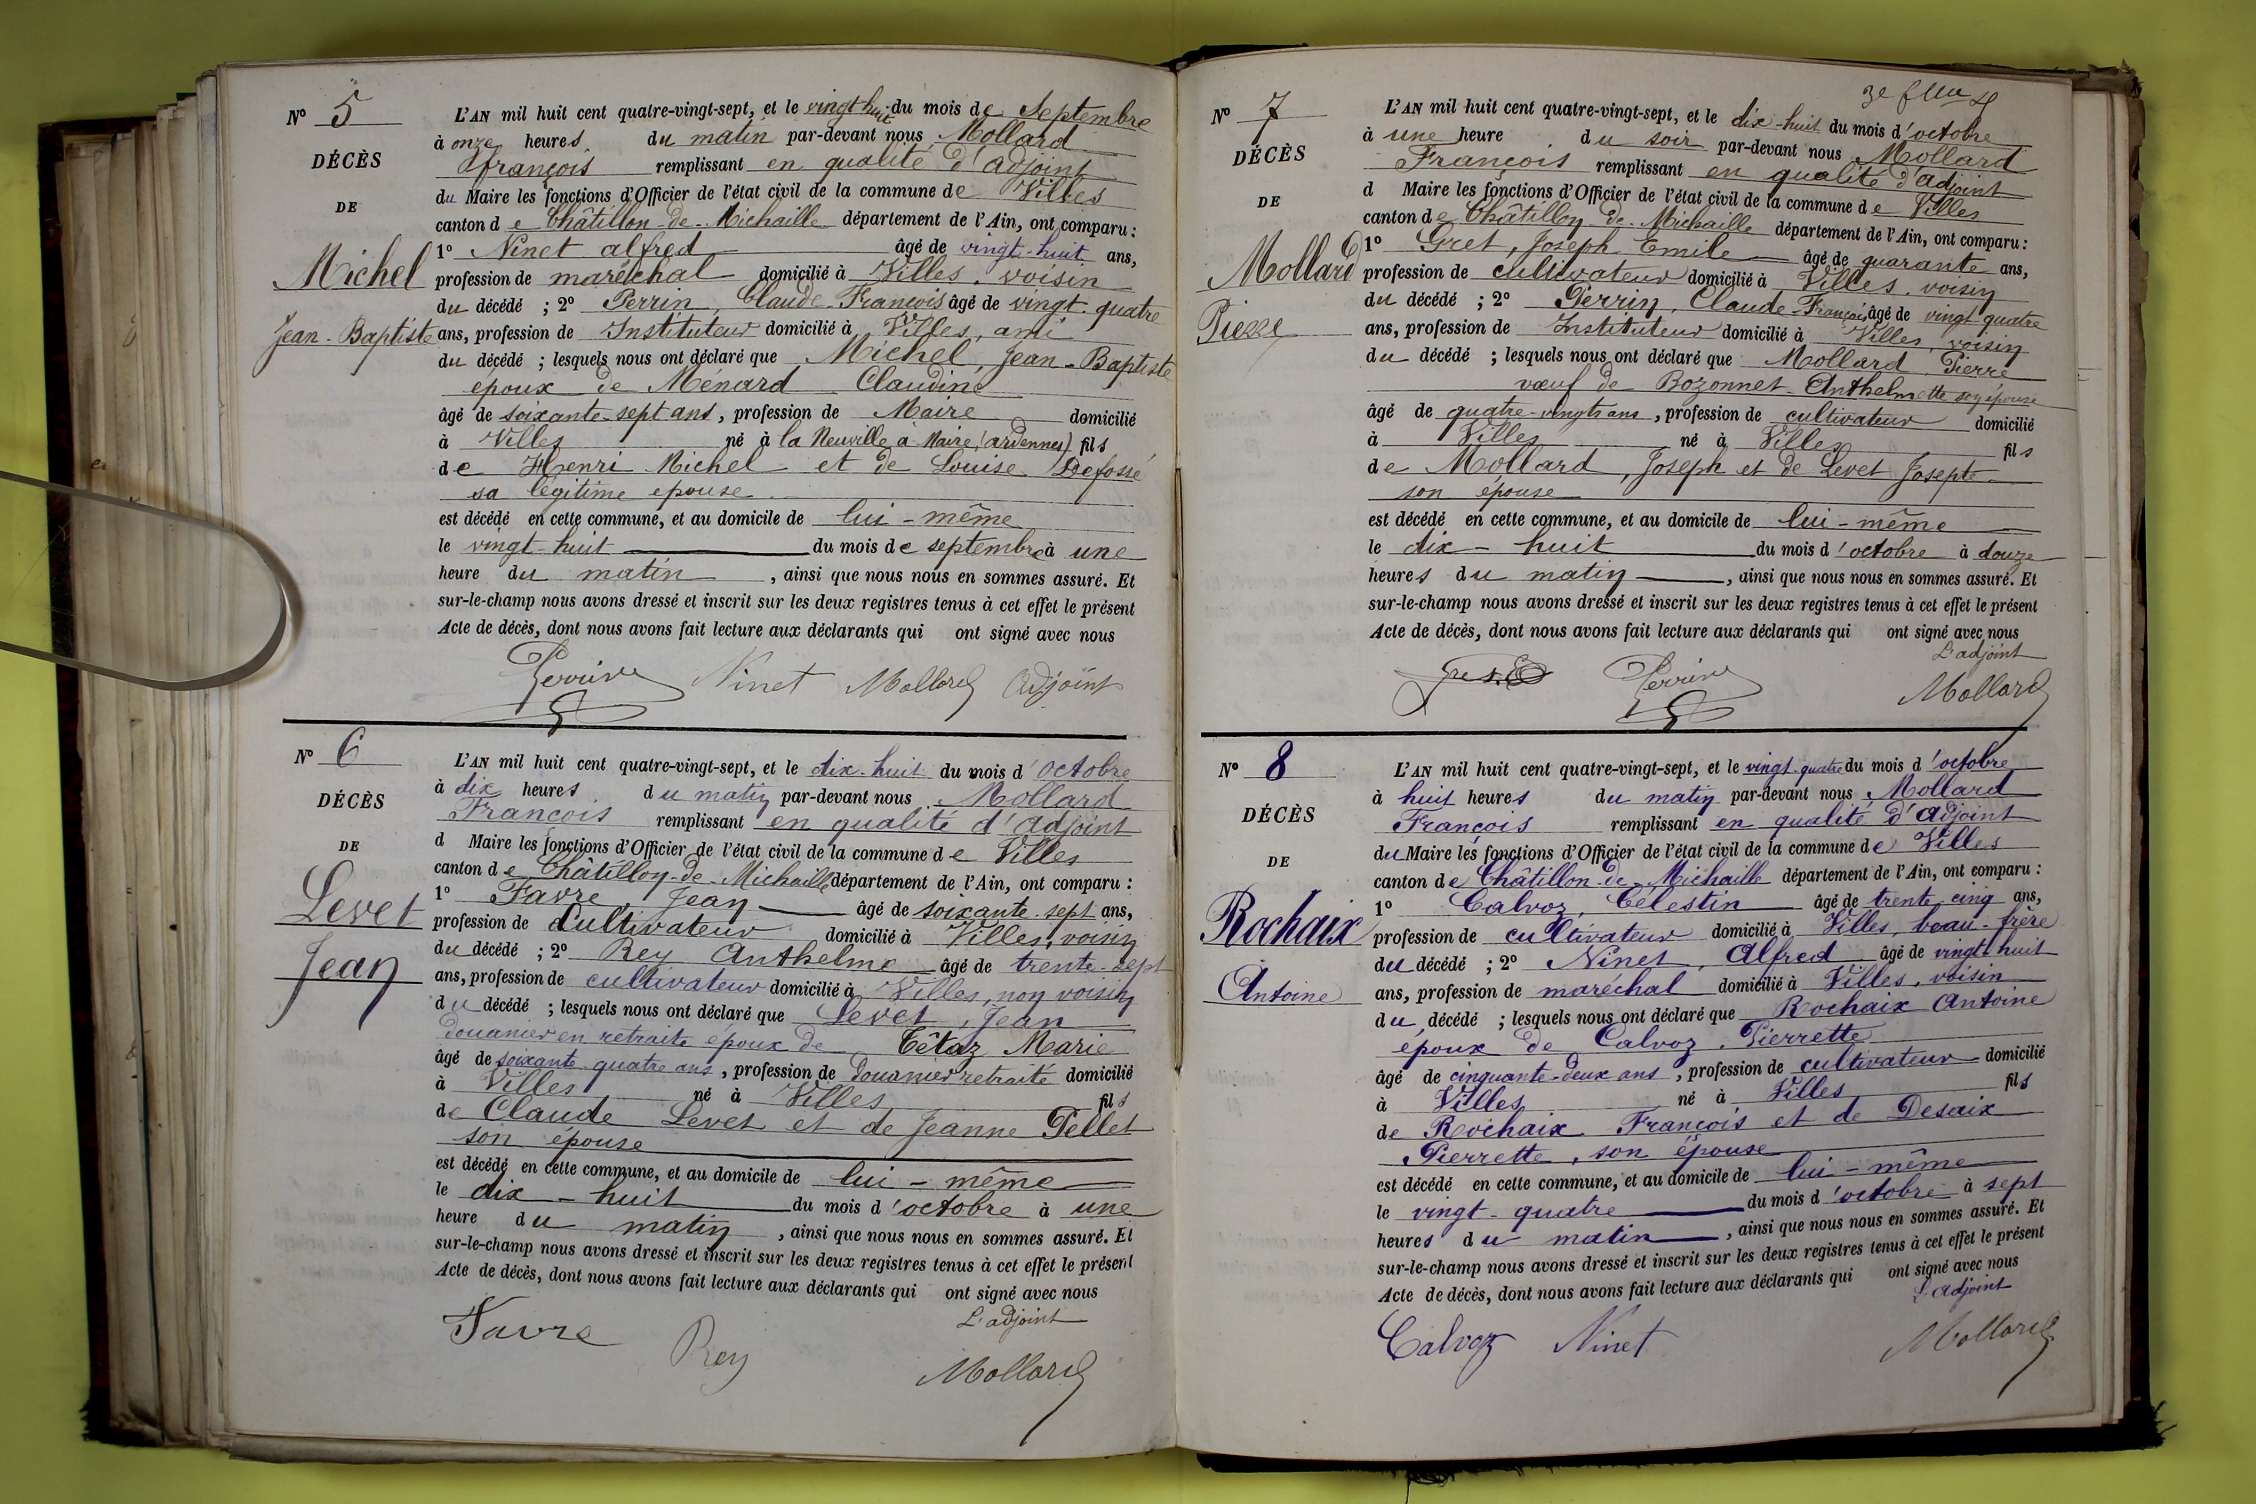 N° 5
DÉCÈS
DE
Michel
Jean-Baptiste
L'AN mil huit cent quatre-vingt-sept, et le vingt huit du mois de Septembre
à onze heures du matin par-devant nous Mollard
françois remplissant en qualité d'adjoint
du Maire les fonctions d'Officier de l'état civil de la commune de Villes
canton de Châtillon-de-Michaille département de l'Ain, ont comparu :
1° Ninet alfred âgé de vingt-huit ans,
profession de maréchal domicilié à Villes, voisin
du décédé ; 2° Perrin, Claude François âgé de vingt-quatre
ans, profession de Instituteur domicilié à Villes, ami
du décédé ; lesquels nous ont déclaré que Michel, Jean-Baptiste
époux de Ménard Claudine
âgé de soixante-sept ans, profession de Maire domicilié
à Villes né à la Neuville à Maire (ardennes) fils
de Henri Michel et de Louise Defossé
sa légitime epouse
est décédé en cette commune, et au domicile de lui-même
le vingt-huit du mois de septembre à une
heure du matin, ainsi que nous nous en sommes assuré. Et
sur-le-champ nous avons dressé et inscrit sur les deux registres tenus à cet effet le présent
Acte de décès, dont nous avons fait lecture aux déclarants qui ont signé avec nous
Perrin Ninet Mollard Adjoint
N° 6
DÉCÈS
DE
Levet
Jean
L'AN mil huit cent quatre-vingt-sept, et le dix-huit du mois d'octobre
à dix heures du matin par-devant nous Mollard
François remplissant en qualité d'adjoint
d Maire les fonctions d'Officier de l'état civil de la commune de Villes
canton de Châtillon-de-Michaille département de l'Ain, ont comparu :
1° Favre, Jean âgé de soixante-sept ans,
profession de Cultivateur domicilié à Villes, voisin
du décédé ; 2° Rey Anthelme âgé de trente-sept
ans, profession de cultivateur domicilié à Villes, non voisin
du décédé ; lesquels nous ont déclaré que Levet, Jean
douanier en retraite époux de Têtaz Marie
âgé de soixante-quatre ans, profession de douanier retraité domicilié
à Villes né à Villes fils
de Claude Levet et de Jeanne Pellet
son épouse
est décédé en cette commune, et au domicile de lui-même
le dix-huit du mois d'octobre à une
heure du matin, ainsi que nous nous en sommes assuré. Et
sur-le-champ nous avons dressé et inscrit sur les deux registres tenus à cet effet le présent
Acte de décès, dont nous avons fait lecture aux déclarants qui ont signé avec nous
L'adjoint
Favre Rey Mollard
N° 7
DÉCÈS
DE
Mollard
Pierre
L'AN mil huit cent quatre-vingt-sept, et le dix-huit du mois d'octobre
à une heure du soir par-devant nous Mollard
François remplissant en qualité d'adjoint
d Maire les fonctions d'Officier de l'état civil de la commune de Villes
canton de Châtillon-de-Michaille département de l'Ain, ont comparu :
1° Gret, Joseph Emile âgé de quarante ans,
profession de cultivateur domicilié à Villes, voisin
du décédé ; 2° Perrin, Claude François âgé de vingt-quatre
ans, profession de Instituteur domicilié à Villes, voisin
du décédé ; lesquels nous ont déclaré que Mollard Pierre
vœuf de Bozonnet Anthelmette son épouse
âgé de quatre-vingts ans, profession de cultivateur domicilié
à Villes né à Villes fils
de Mollard, Joseph et de Levet Josepte
son épouse
est décédé en cette commune, et au domicile de lui-même
le dix-huit du mois d'octobre à douze
heures du matin, ainsi que nous nous en sommes assuré. Et
sur-le-champ nous avons dressé et inscrit sur les deux registres tenus à cet effet le présent
Acte de décès, dont nous avons fait lecture aux déclarants qui ont signé avec nous
L'adjoint
Perrin Mollard
N° 8
DÉCÈS
DE
Rochaix
Antoine
L'AN mil huit cent quatre-vingt-sept, et le vingt-quatre du mois d'octobre
à huit heures du matin par-devant nous Mollard
François remplissant en qualité d'adjoint
du Maire les fonctions d'Officier de l'état civil de la commune de Villes
canton de Châtillon-de-Michaille département de l'Ain, ont comparu :
1° Calvoz, Célestin âgé de trente-cinq ans,
profession de cultivateur domicilié à Villes, beau-frère
du décédé ; 2° Ninet, Alfred âgé de vingt huit
ans, profession de maréchal domicilié à Villes, voisin
du décédé ; lesquels nous ont déclaré que Rochaix Antoine
époux de Calvoz, Pierrette
âgé de cinquante-deux ans, profession de cultivateur domicilié
à Villes né à Villes fils
de Rochaix François et de Desaix
Pierrette, son épouse
est décédé en cette commune, et au domicile de lui-même
le vingt-quatre du mois d'octobre à sept
heures du matin, ainsi que nous nous en sommes assuré. Et
sur-le-champ nous avons dressé et inscrit sur les deux registres tenus à cet effet le présent
Acte de décès, dont nous avons fait lecture aux déclarants qui ont signé avec nous
L'adjoint
Calvoz Ninet Mollard